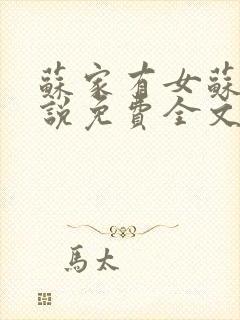 蘇家有女蘇
說免費全文
馬太